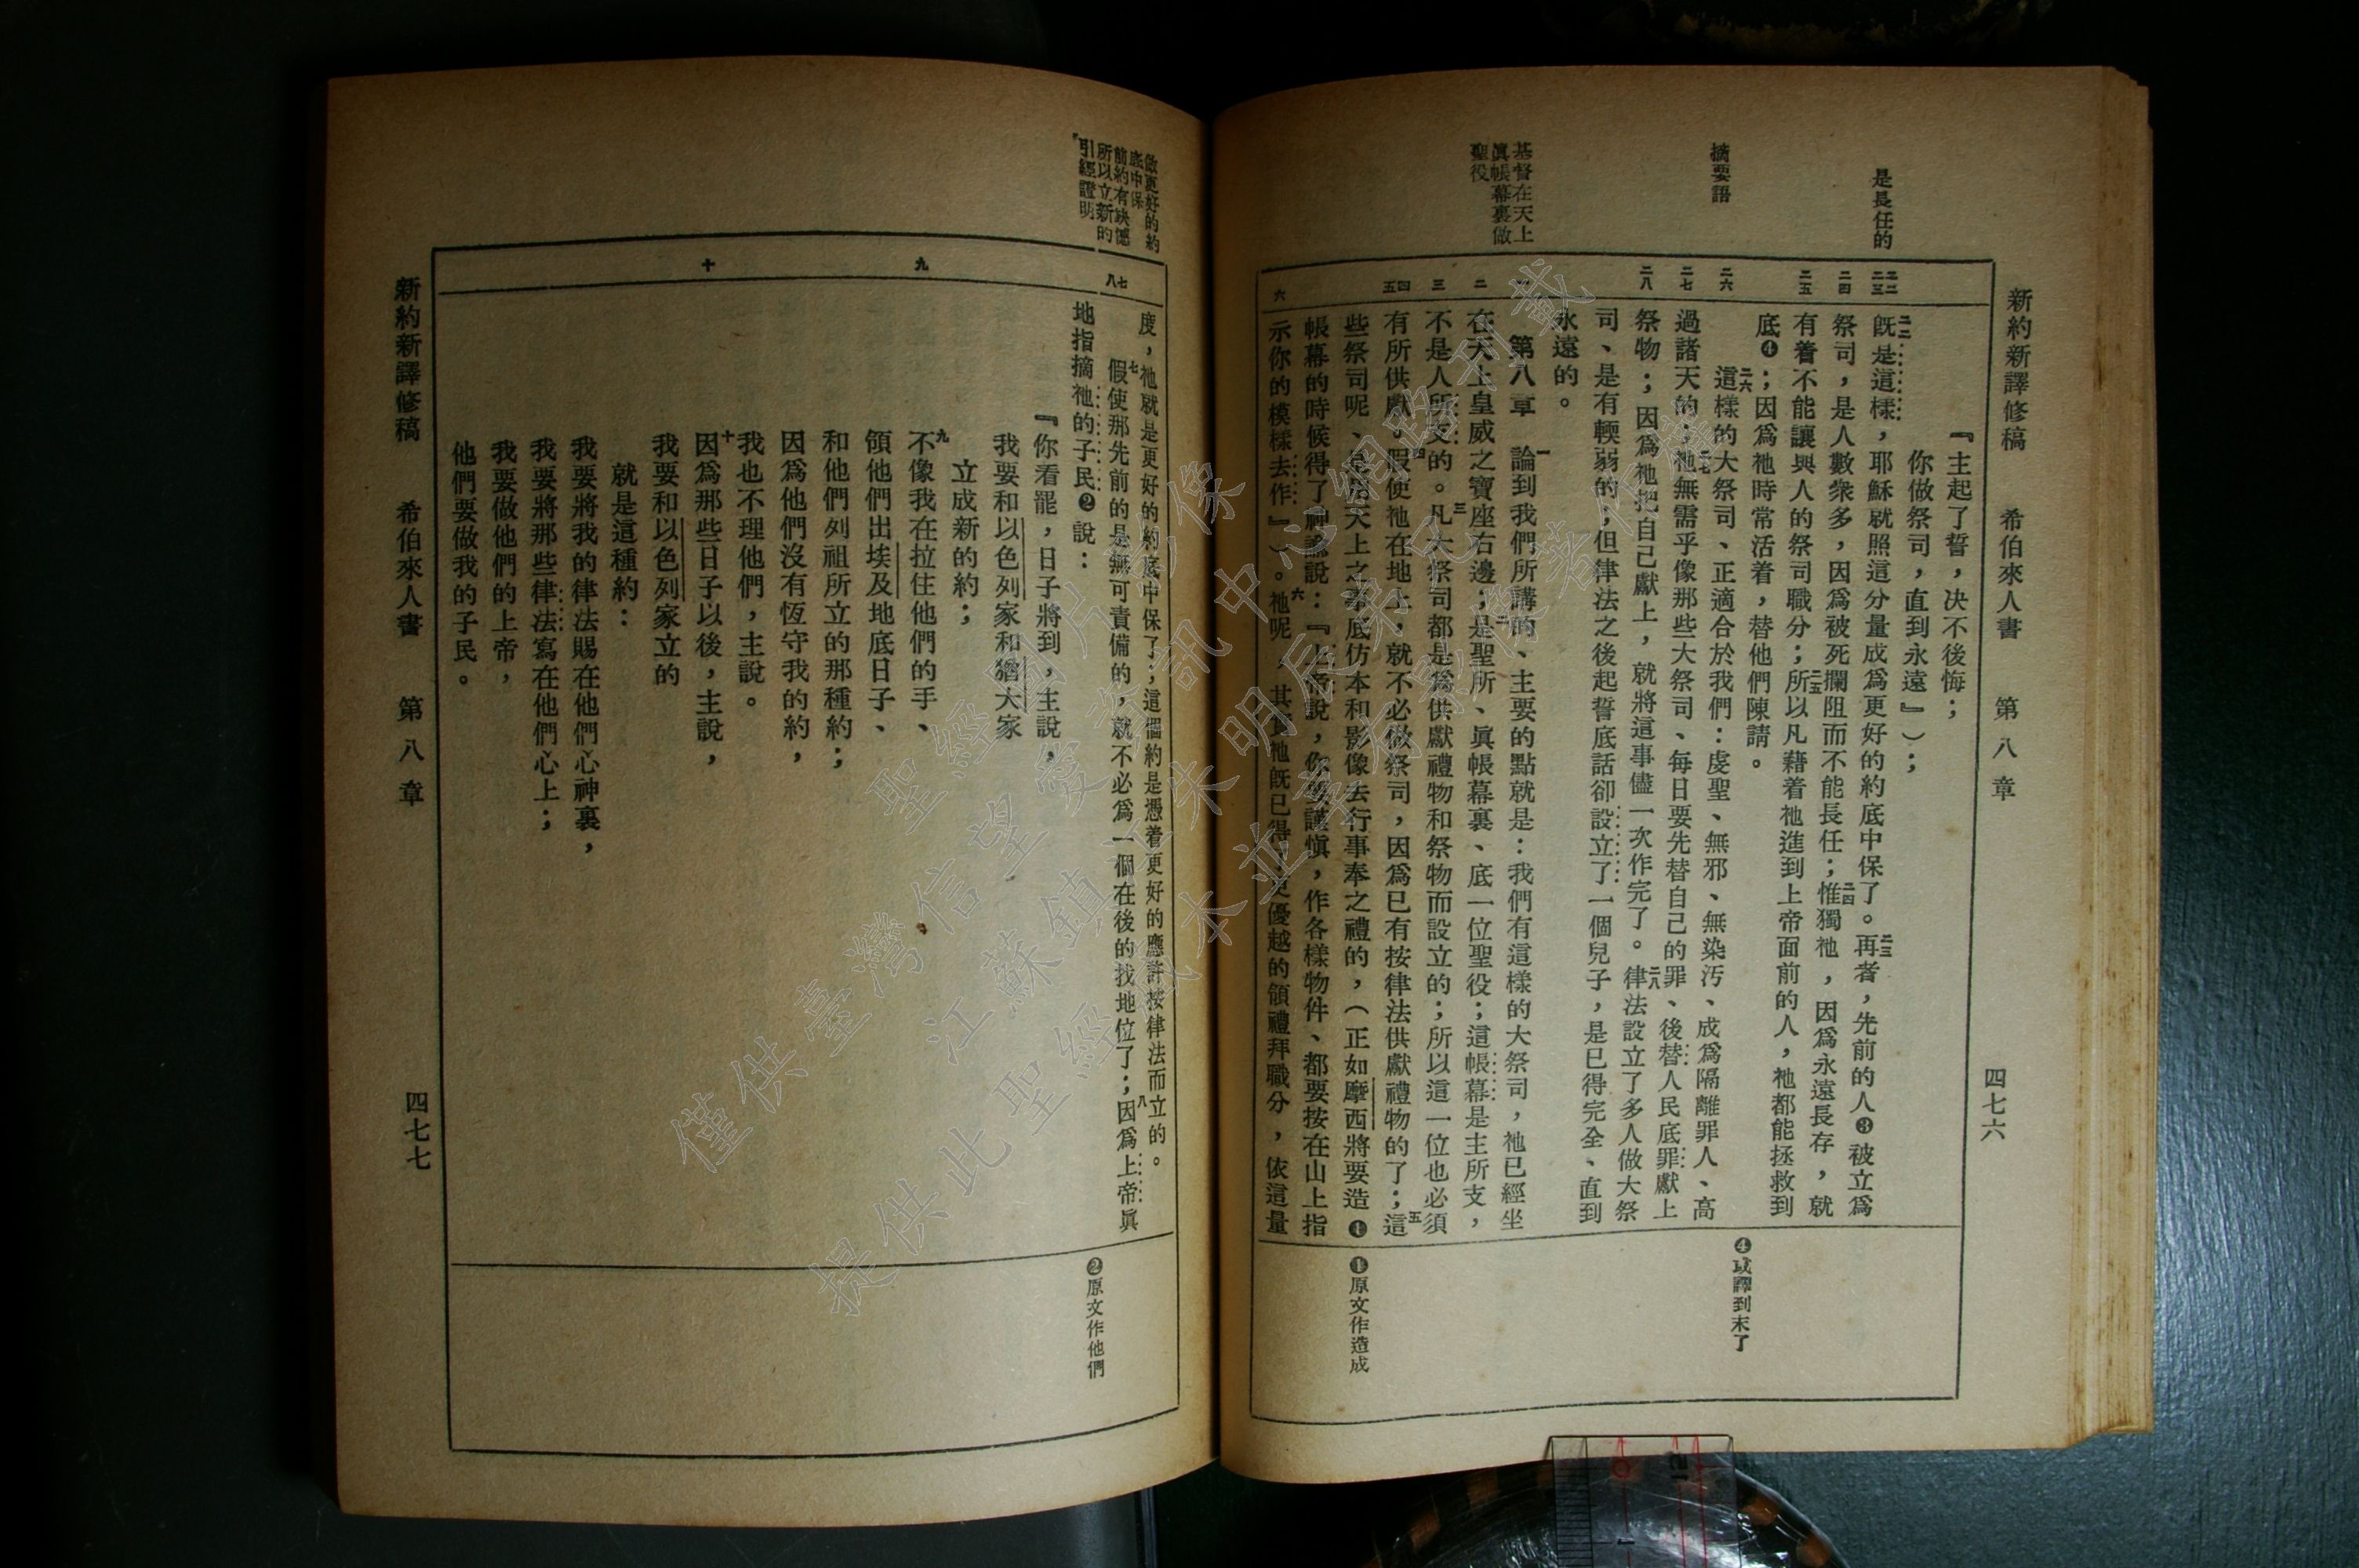 新約新譯修稿　希伯來人書　第八章　四七六
是長任的
摘要語
基督在天上
眞帳幕裏做
聖役
二二
二三
二四
二五
二六
二七
二八
一
二
三
四
五
六
『主起了誓，決不後悔；
你做祭司，直到永遠』）；
二二既是這樣，耶穌就照這分量成爲更好的約底中保了。二三再者，先前的人❸被立爲
祭司，是人數衆多，因爲被死攔阻而不能長任；二四惟獨祂，因爲永遠長存，就
有着不能讓與人的祭司職分；二五所以凡藉着祂進到上帝面前的人，祂都能拯救到
底❹；因爲祂時常活着，替他們陳請。
二六這樣的大祭司、正適合於我們：虔聖、無邪、無染汚、成爲隔離罪人、高
過諸天的；二七祂無需乎像那些大祭司、每日要先替自己的罪、後替人民底罪獻上
祭物；因爲祂把自己獻上，就將這事儘一次作完了。二八律法設立了多人做大祭
司、是有輭弱的；但律法之後起誓底話卻設立了一個兒子，是已得完全、直到
永遠的。
第八章　一論到我們所講的、主要的點就是：我們有這樣的大祭司，祂已經坐
在天上皇威之寶座右邊；二是聖所、眞帳幕裏、底一位聖役；這帳幕是主所支，
不是人所支的。三凡大祭司都是爲供獻禮物和祭物而設立的；所以這一位也必須
有所供獻。四假使祂在地上，就不必做祭司，因爲已有按律法供獻禮物的了；五這
些祭司呢、是拿天上之事底仿本和影像去行事奉之禮的，（正如摩西將要造❶
帳幕的時候得了神諭說：『上帝說，你要謹愼，作各樣物件、都要按在山上指
示你的模樣去作』）。六祂呢，其實祂既已得了更優越的領禮拜職分，依這量
❹或譯到末了
❶原文作造成
做更好的約
底中保
前約有缺憾
所以立新的
引經證明
七
八
九
十
度，祂就是更好的約底中保了；這個約是憑着更好的應許按律法而立的。
七假使那先前的是無可責備的，就不必爲一個在後的找地位了；八因爲上帝眞
地指摘祂的子民❷說：
『你看罷，日子將到，主說，
我要和以色列家和猶大家
立成新的約；
九不像我在拉住他們的手、
領他們出埃及地底日子、
和他們列祖所立的那種約；
因爲他們沒有恆守我的約，
我也不理他們，主說。
十因爲那些日子以後，主說，
我要和以色列家立的
就是這種約：
我要將我的律法賜在他們心神裏，
我要將那些律法寫在他們心上；
我要做他們的上帝，
他們要做我的子民。
❷原文作他們
新約新譯修稿　希伯來人書　第八章　四七七
僅供臺灣信望愛資訊中心網路刊載
江蘇鎮江朱明辰弟兄
提供此聖經底本並享有影像著作權